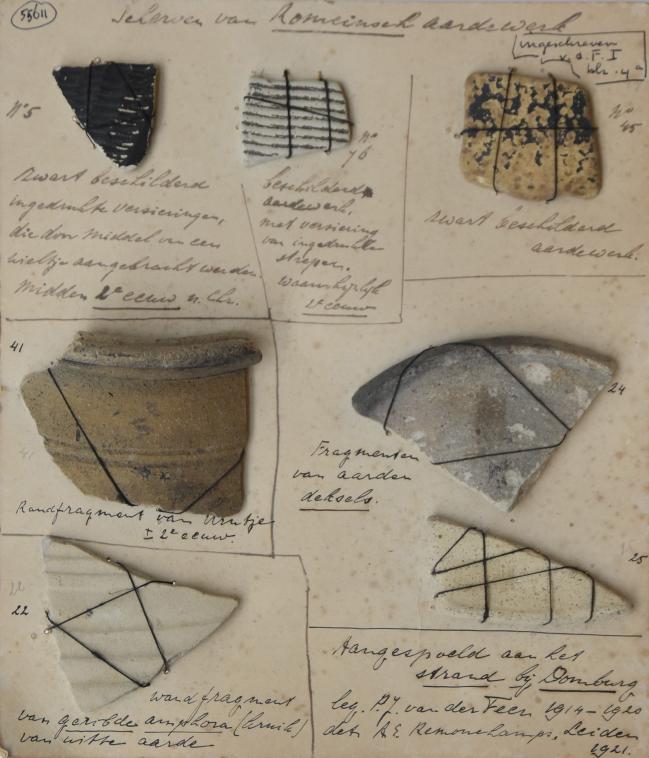 55611
Scherven van Romeinsch aardewerk
ingeschreven
v. d. F. I
blz. 4a
No 5
zwart beschilderd
ingedrukte versieringen,
die door middel van een
wieltje aangebracht werden.
Midden 2e eeuw n. Chr.
No
76
beschilderd
aardewerk,
met versiering
van ingedrukte
strepen.
waarschijnlijk
2e eeuw
No
45
zwart beschilderd
aardewerk.
41
41
Randfragment van Urntje
I 2e eeuw.
24
Fragmenten
van aarden
deksels.
25
22
22
wandfragment
van geribde amphora (kruik)
van witte aarde
Aangespoeld aan het
strand bij Domburg
leg. P.J. van der Feen 1914-1920
det. A.E. Remouchamps, Leiden
1921.